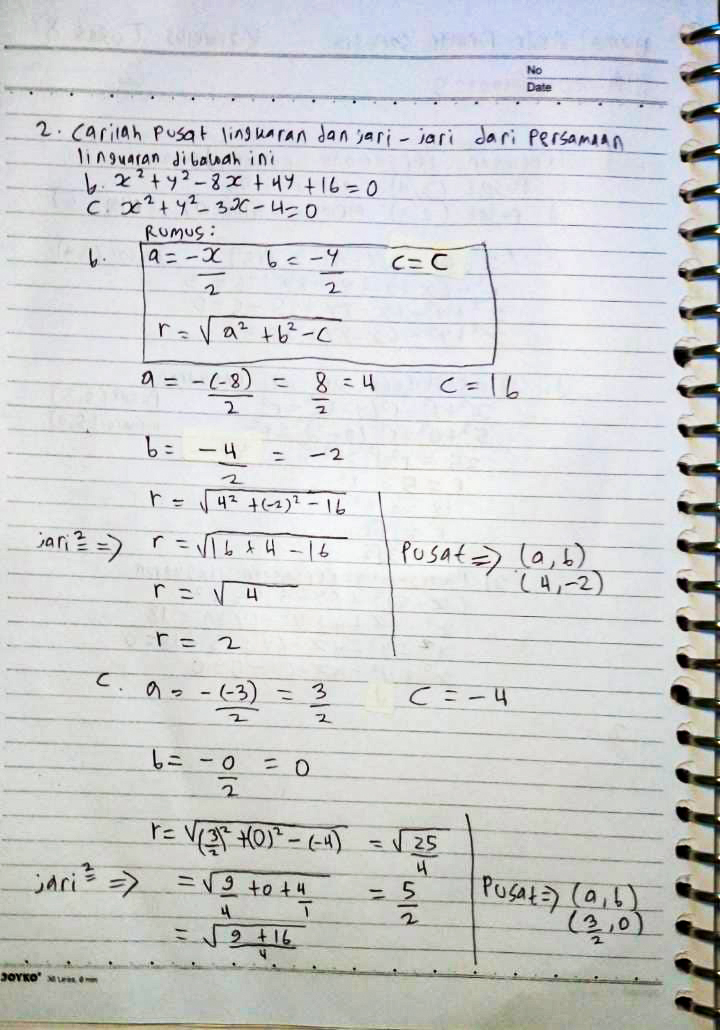 No
Date
2. Carilah pusat lingkaran dan jari-jari dari persamaan
lingkaran dibawah ini
b. x² + y² - 8x + 4y + 16 = 0
c. x² + y² - 3x - 4 = 0
Rumus:
b. a = -x/2 b = -y/2 c = c
r = √(a² + b² - c)
a = -(-8)/2 = 8/2 = 4 c = 16
b = -4/2 = -2
r = √(4² + (-2)² - 16)
jari² => r = √(16 + 4 - 16)
r = √4
r = 2
Pusat => (a, b)
(4, -2)
c. a = -(-3)/2 = 3/2 c = -4
b = -0/2 = 0
r = √((3/2)² + (0)² - (-4)) = √(25/4)
jari² => = √(9/4 + 0 + 4/1) = 5/2
= √((9 + 16)/4)
Pusat => (a, b)
(3/2, 0)
JOYKO